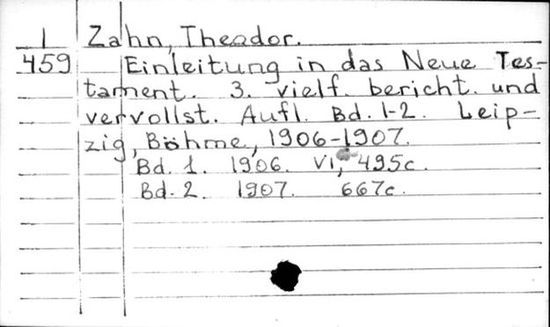 I Zahn, Theodor.
459 Einleitung in das Neue Tes-
tament. 3. vielf. bericht. und
vervollst. Aufl. Bd. 1-2. Leip-
zig, Böhme, 1906-1907.
Bd. 1. 1906. VI, 495c.
Bd. 2. 1907. 667c.